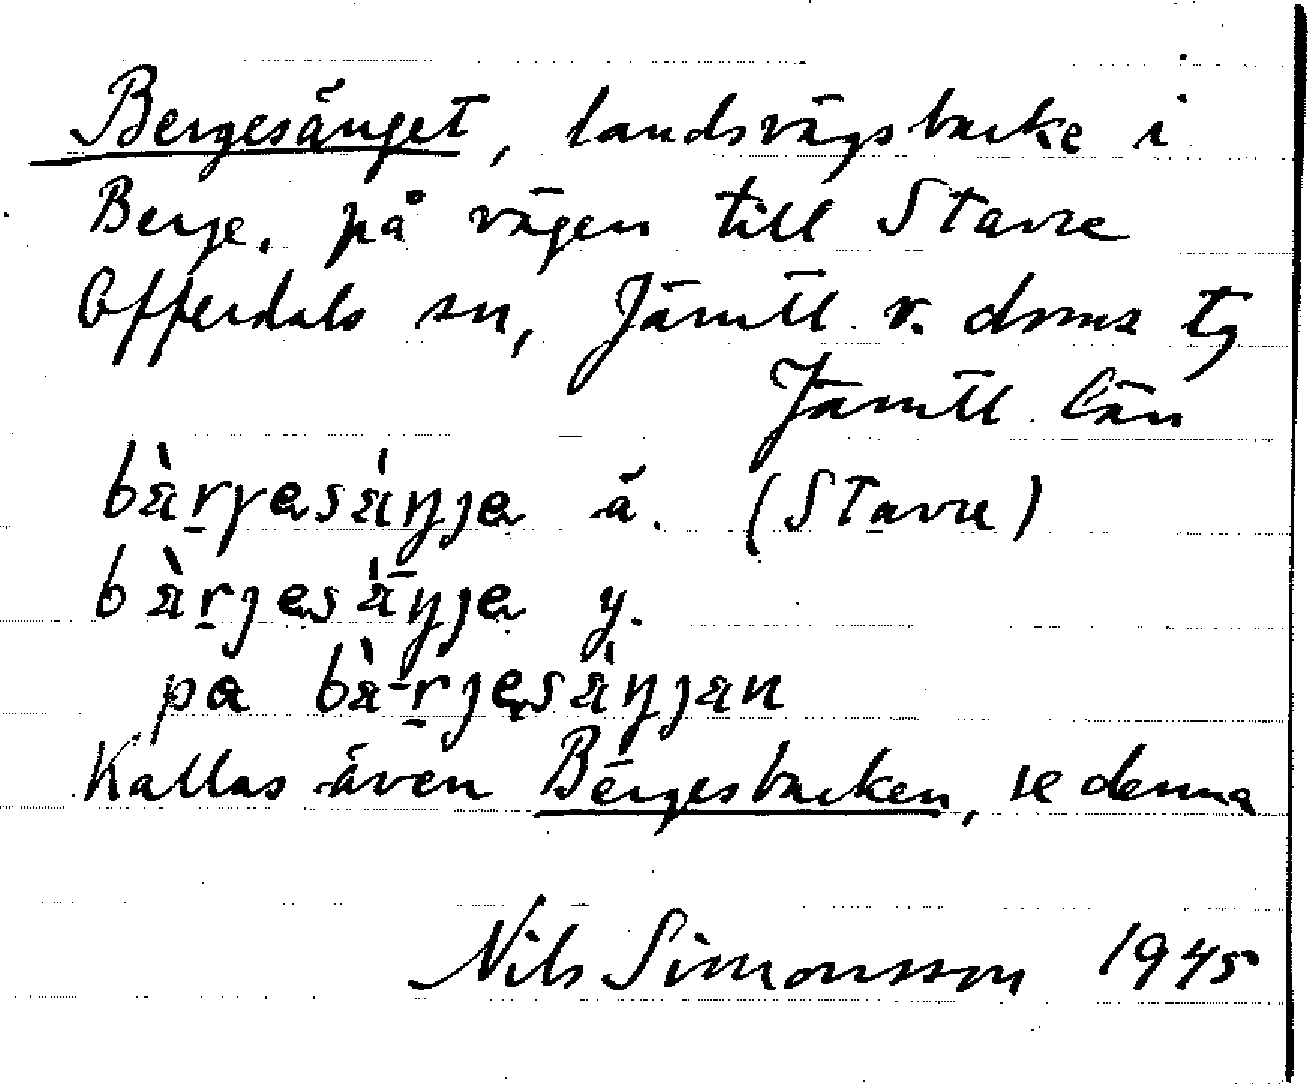 Bergesänget, landsvägsbacke i
Berge, på vägen till Stavre
Offerdals sn, Jämtl. v. doms tg
Jämtl. län
bὰrgesάŋje ä. (Stavre)
bὰrjesάŋje y.
pa bὰ-rjesάŋjan
Kallas även Bergesbacken, se denna
Nils Simonsson 1945